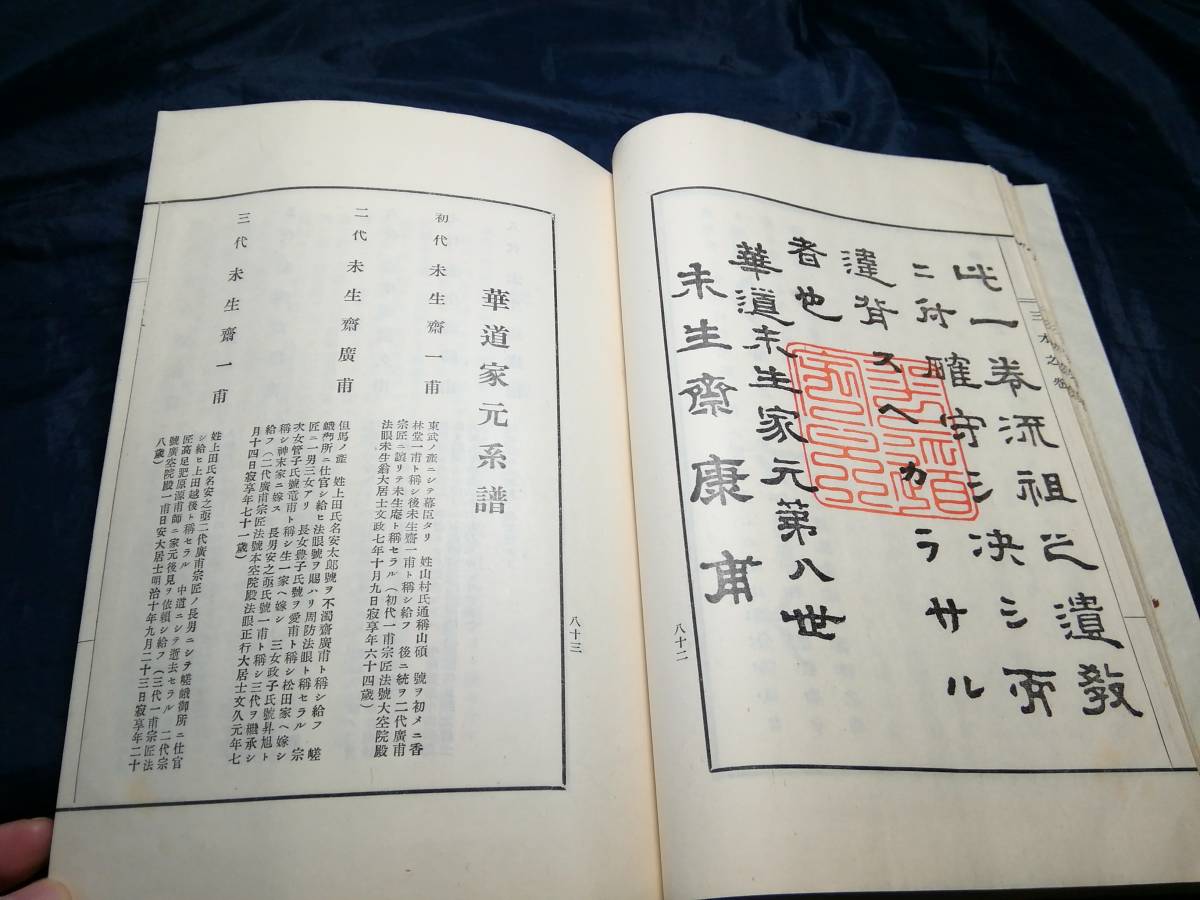 三才之巻
此一巻流祖之遺教
ニ付確守シ決シ而
違背スヘカラサル
者也
華道未生家元第八世
未生齋康甫
八十二
華道家元系譜
初代未生齋一甫
東武ノ產ニシテ幕臣タリ 姓山村氏通稱山碩 號ヲ初メニ香
林堂一甫ト稱シ後未生齋一甫ト稱シ給フ 後ニ統ヲ二代廣甫
宗匠ニ讓リテ未生庵ト稱セラル（初代一甫宗匠法號大空院殿
法眼未生翁大居士文政七年十月九日寂享年六十四歲）
二代未生齋廣甫
但馬ノ產 姓上田氏名安太郞號ヲ不濁齋廣甫ト稱シ給フ 嵯
峨御所ニ仕官シ給ヒ法眼號ヲ賜ハリ周防法眼ト稱セラル 宗
匠ニ一男三女アリ 長女豊子氏號ヲ愛甫ト稱シ松田家ヘ嫁シ
次女管子氏號竜甫ト稱シ生一家ヘ嫁シ 三女政子氏號昇旭ト
稱シ神末家ニ嫁ス 長男安之亟氏號一甫ト稱シ三代ヲ繼承シ
給フ（二代廣甫宗匠法號本空院殿法眼正行大居士文久元年七
月十四日寂享年七十一歲）
三代未生齋一甫
姓上田氏名安之亟二代廣甫宗匠ノ長男ニシテ嵯峨御所ニ仕官
シ給ヒ上田越後ト稱セラル 中道ニシテ逝去セラル 二代宗
匠高足肥原源甫師ニ家元後見ヲ依賴シ給フ（三代一甫宗匠法
號廣空院殿一甫日安大居士明治十年九月二十三日寂享年二十
八歲）
八十三